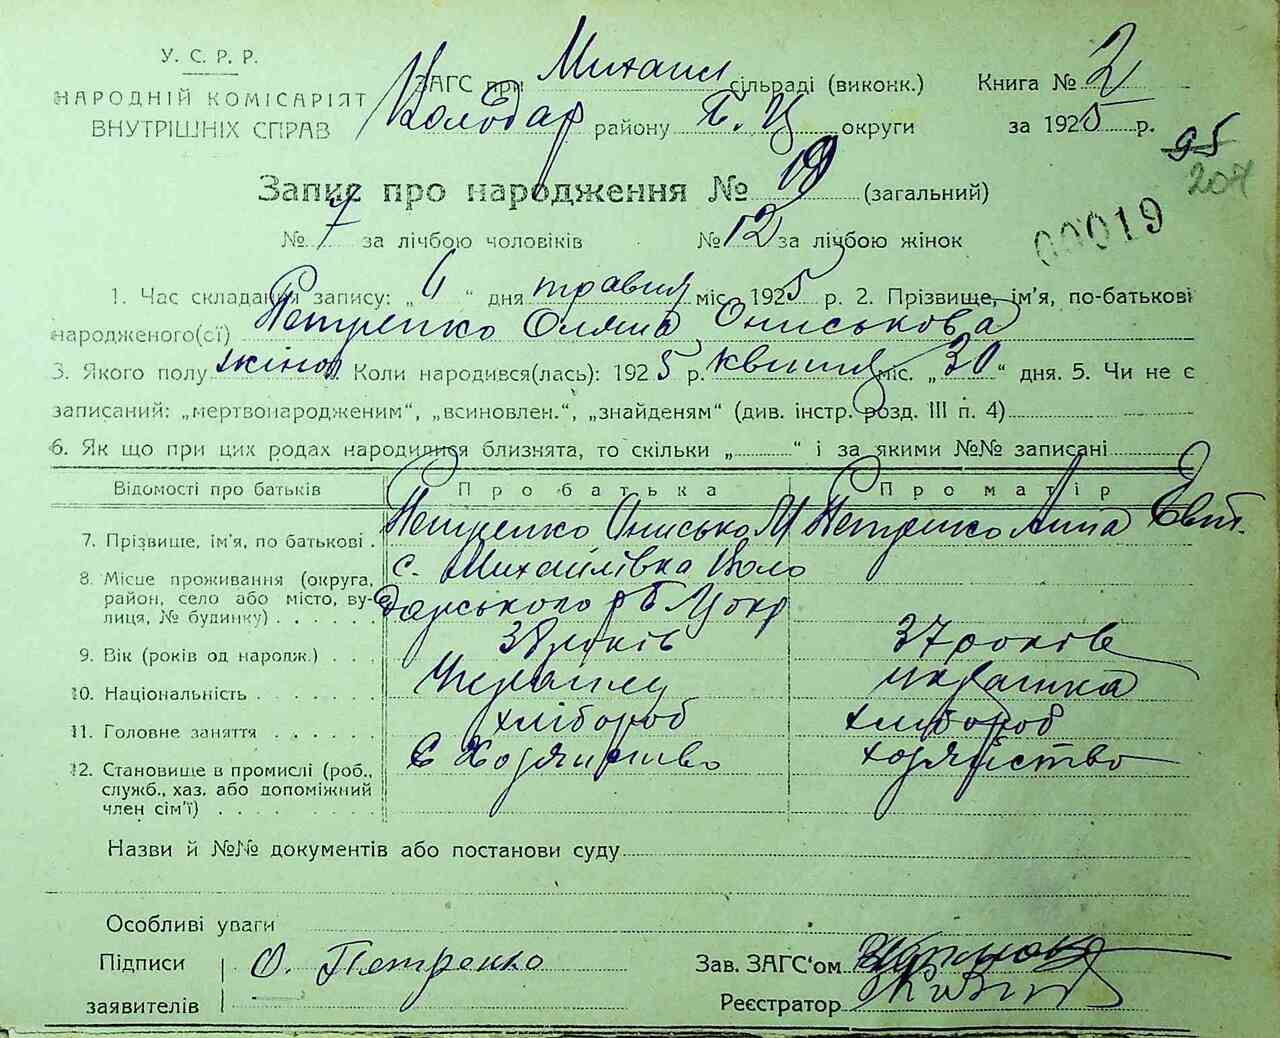 У. С. Р. Р.
НАРОДНІЙ КОМІСАРІЯТ
ВНУТРІШНІХ СПРАВ
ЗАГС при Михаил сільраді (виконк.) Книга № 2
Володар району Б. Ц округи за 1925 р.
95
204
Запис про народження № 19 (загальний)
№ 7 за лічбою чоловіків № 12 за лічбою жінок
00019
1. Час складання запису: „ 4 “ дня травня міс. 1925 р. 2. Прізвище, ім'я, по-батькові
народженого(сї) Петренко Оляна Ониськова
3. Якого полу жіноч. Коли народився(лась): 1925 р. квитня міс. „ 30 “ дня. 5. Чи не є
записаний: „мертвонародженим“, „всиновлен.“, „знайденям“ (див. інстр. розд. III п. 4)
6. Як що при цих родах народилися близнята, то скільки „ “ і за якими №№ записані
Відомості про батьків Про батька Про матір
7. Прізвище, ім'я, по батькові . Петренко Онисько М Петренко Анна Евт.
8. Місце проживання (округа, с. Михайлівка Воло
район, село або місто, ву- дарського р Б Ц окр
лиця, № будинку)
9. Вік (років од народж.) . . . 38 років 37 років
10. Національність . . . . . . Украинец украинка
11. Головне заняття . . . . . . хлібороб хлибороб
12. Становище в промислі (роб., Є Хозяйство хозяйство
служб., хаз. або допоміжний
член сім'ї) . . . . . . . .
Назви й №№ документів або постанови суду
Особливі уваги
Підписи О. Петренко Зав. ЗАГС'ом
заявителів Реєстратор